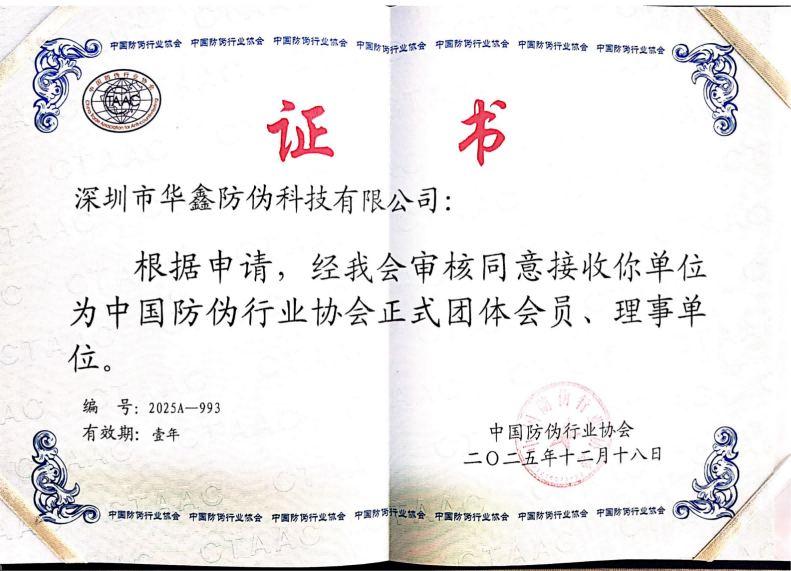 中国防伪行业协会 中国防伪行业协会 中国防伪行业协会 中国防伪行业协会 中国防伪行业协会 中国防伪行业协会 中国防伪行业协会
中国防伪行业协会
CTAAC
证 书
深圳市华鑫防伪科技有限公司：
根据申请，经我会审核同意接收你单位
为中国防伪行业协会正式团体会员、理事单
位。
编 号：2025A—993
有效期：壹年
中国防伪行业协会
二〇二五年十二月十八日
中国防伪行业协会 中国防伪行业协会 中国防伪行业协会 中国防伪行业协会 中国防伪行业协会 中国防伪行业协会 中国防伪行业协会